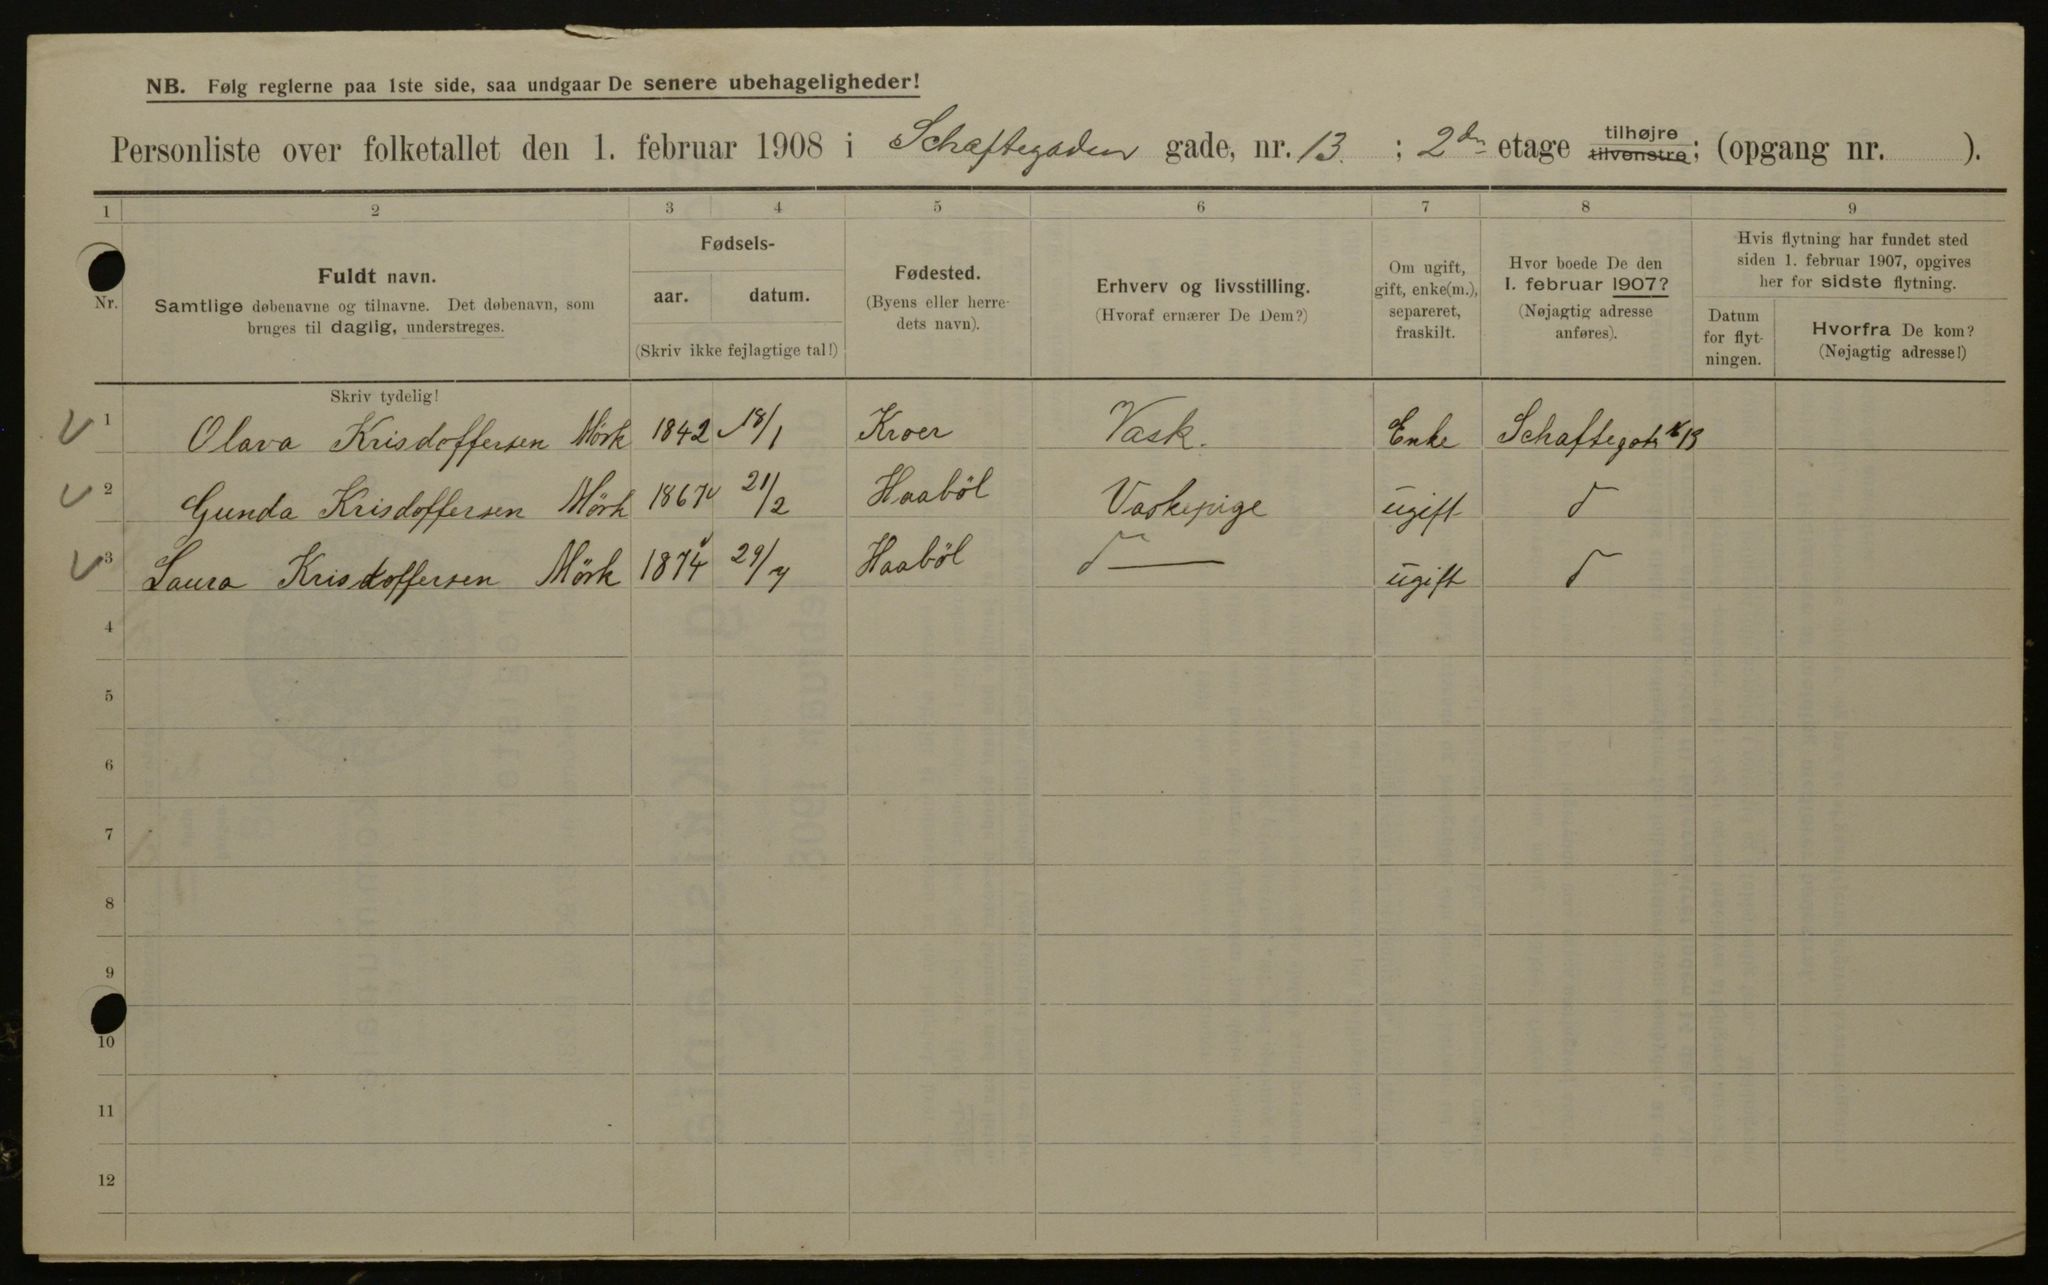 NB. Følg reglerne paa 1ste side, saa undgaar De senere ubehageligheder!
Personliste over folketallet den 1. februar 1908 i Schaftegaden gade, nr. 13. ; 2den etage tilhøjre tilvenstre; (opgang nr. ).
1 2 3 4 5 6 7 8 9
Nr.
Fuldt navn.
Samtlige døbenavne og tilnavne. Det døbenavn, som
bruges til daglig, understreges.
Fødsels-
aar. datum.
(Skriv ikke fejlagtige tal!)
Fødested.
(Byens eller herre-
dets navn).
Erhverv og livsstilling.
(Hvoraf ernærer De Dem?)
Om ugift,
gift, enke(m.),
separeret,
fraskilt.
Hvor boede De den
1. februar 1907?
(Nøjagtig adresse
anføres).
Hvis flytning har fundet sted
siden 1. februar 1907, opgives
her for sidste flytning.
Datum
for flyt-
ningen.
Hvorfra De kom?
(Nøjagtig adresse!)
Skriv tydelig!
1 Olava Krisdoffersen Mörk 1842 18/1 Kroer Vask. Enke Schaftegat. № 13
2 Gunda Krisdoffersen Mörk 1867 21/2 Haaböl Vaskepige ugift d
3 Laura Krisdoffersen Mörk 1874 29/7 Haaböl d ugift d
4
5
6
7
8
9
10
11
12